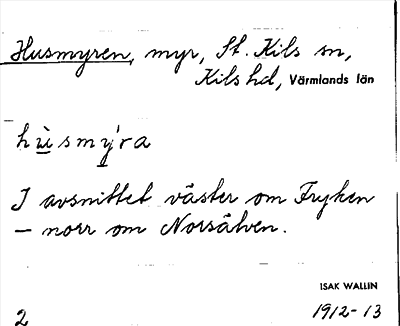 Husmyren, myr, St. Kils sn,
Kils hd, Värmlands län
hùsmy̆ra
I avsnittet väster om Fryken
– norr om Norsälven.
ISAK WALLIN
1912-13
2